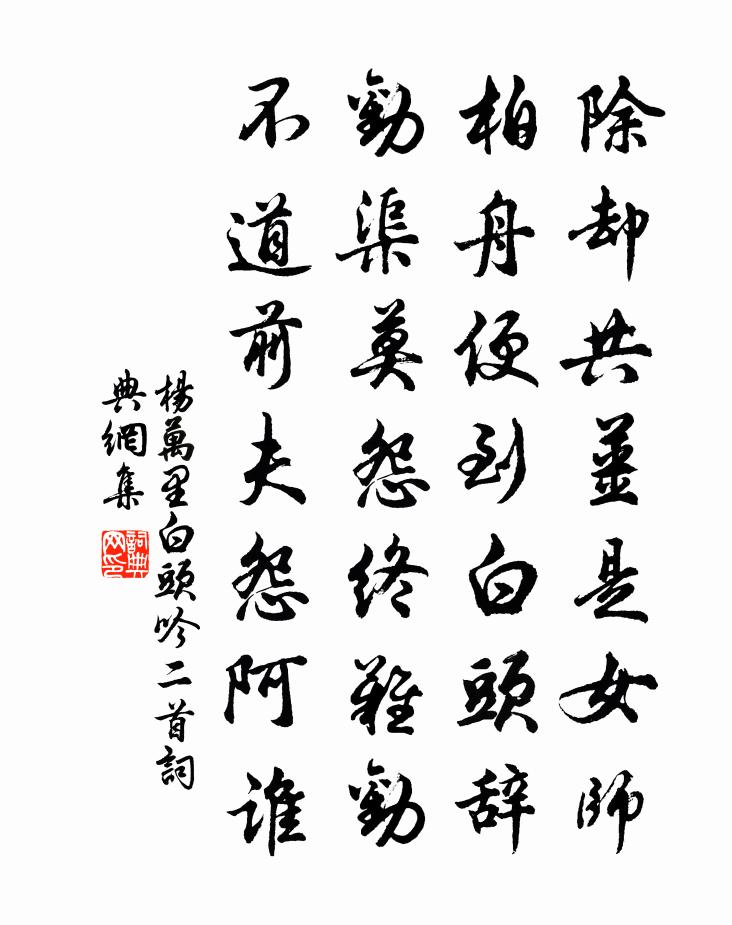 除却共薑是女師
柏舟便到白頭辞
勸渠莫怨終難勸
不道前夫怨阿誰
楊萬里白頭吟二首詞
典網集
詞典
网印